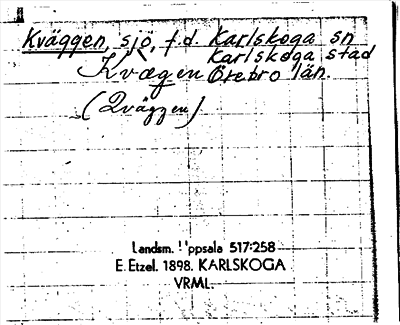 Kväggen, sjö, f.d. Karlskoga sn
Karlskoga stad
Kvægen Örebro län.
(Qväggen)
Landsm. Uppsala 517:258
E. Etzel. 1898. KARLSKOGA
VRML.